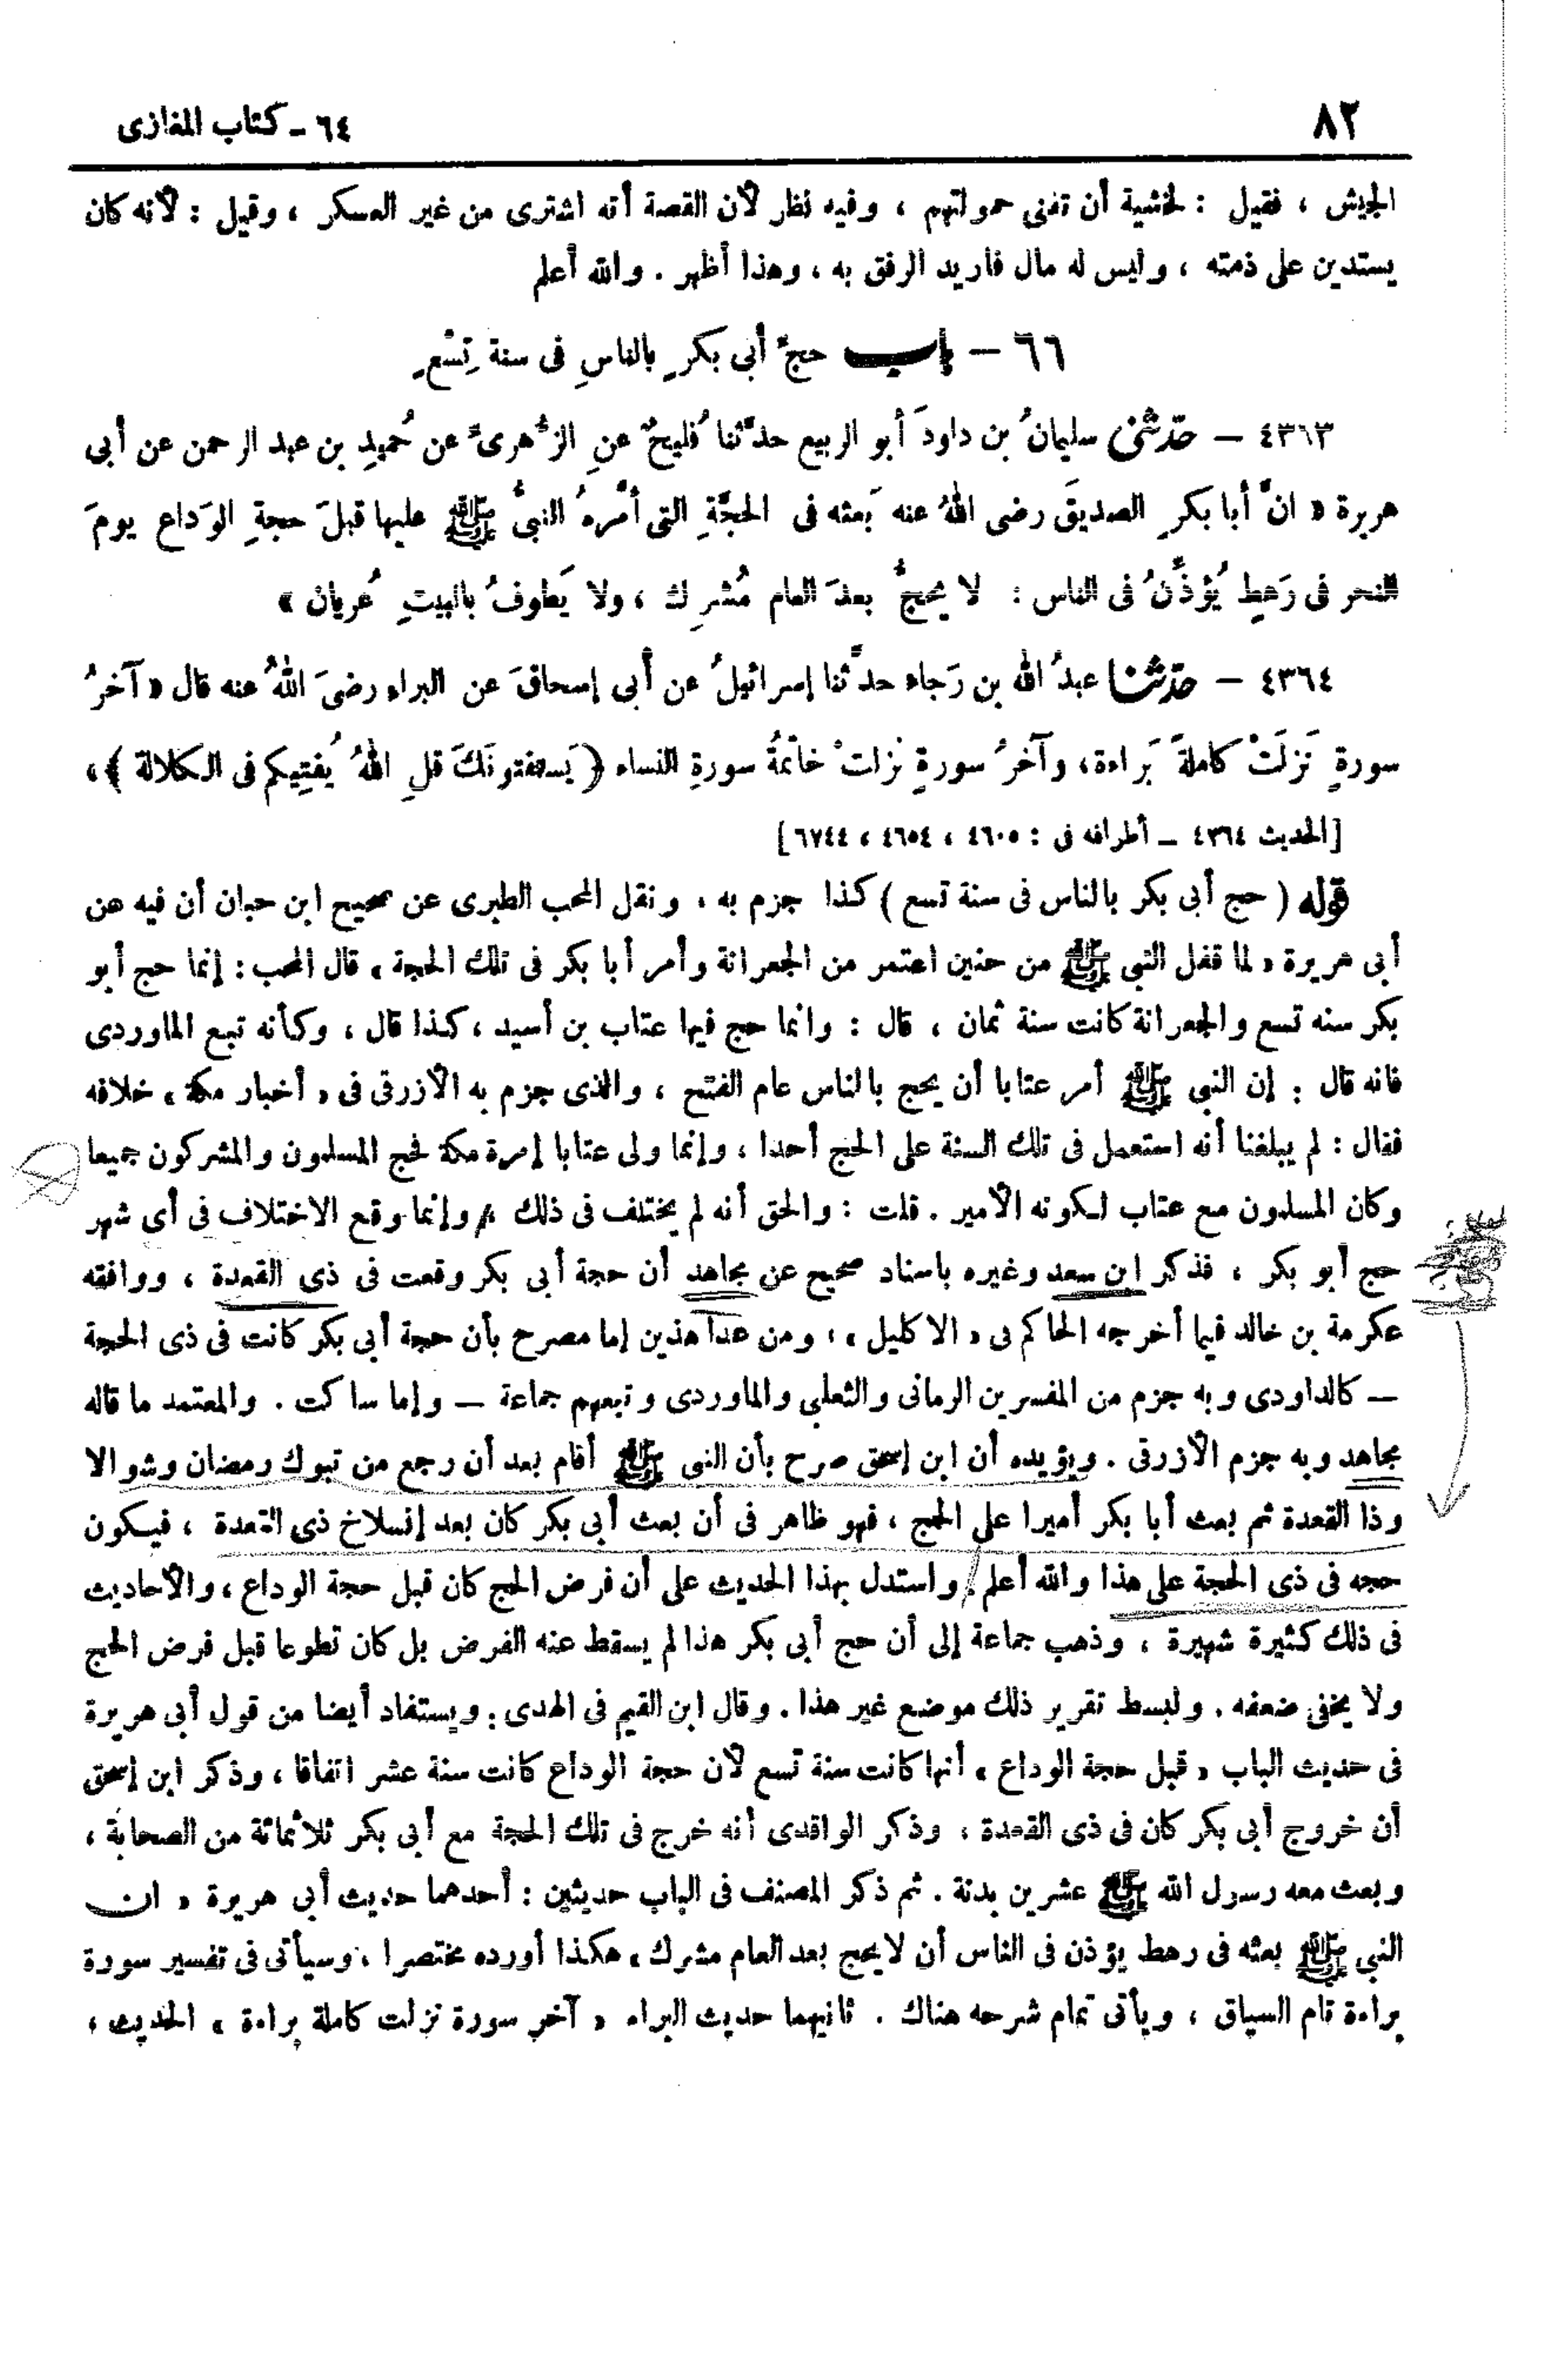 ٨٢
٦٤ - كتاب المغازى
الجيش ، فقيل : لخشية أن تفنى حمولتهم ، وفيه نظر لأن القصة أنه اشترى من غير العسكر ، وقيل : لأنه كان
يستدين على ذمته ، وليس له مال فاريد الرفق به ، وهذا أظهر . والله أعلم
٦٦ - باب حجُّ أبى بكرٍ بالناسِ فى سنة تِسْعٍ
٤٣٦٣ - حدّثنى سليمانُ بن داودَ أبو الربيع حدَّثنا فُليحٌ عنِ الزُّهرىِّ عن حُميدِ بن عبد الرحمن عن أبى
هريرة « انَّ أبا بكرٍ الصديقَ رضى اللهُ عنه بَعثه فى الحجَّةِ التى أمَّرهُ النبىُّ ﷺ عليها قبلَ حجةِ الوَداع يومَ
النحر فى رَهطٍ يُؤذِّنُ فى الناس : لا يحجُّ بعدَ العام مُشرِك ، ولا يَطوفُ بالبيتِ عُريان »
٤٣٦٤ - حدّثنا عبدُ الله بن رَجاء حدَّثنا إسرائيلُ عن أبى إسحاقَ عن البراء رضىَ اللهُ عنه قال « آخرُ
سورةٍ نَزلَتْ كاملةً بَراءة، وآخرُ سورةٍ نزلتْ خاتمةُ سورةِ النساء ﴿ يَستفتونَكَ قلِ اللهُ يُفتِيكم فى الكلالة ﴾ »
[ الحديث ٤٣٦٤ - أطرافه فى : ٤٦٠٥ ، ٤٦٥٤ ، ٦٧٤٤ ]
قوله ( حج أبى بكر بالناس فى سنة تسع ) كذا جزم به ، ونقل المحب الطبرى عن صحيح ابن حبان أن فيه عن
أبى هريرة « لما قفل النبى ﷺ من حنين اعتمر من الجعرانة وأمر أبا بكر فى تلك الحجة » قال المحب : إنما حج أبو
بكر سنه تسع والجعرانة كانت سنة ثمان ، قال : وانما حج فيها عتاب بن أسيد ، كذا قال ، وكأنه تبع الماوردى
فانه قال : إن النبى ﷺ أمر عتابا أن يحج بالناس عام الفتح ، والذى جزم به الأزرقى فى « أخبار مكة » خلافه
فقال : لم يبلغنا أنه استعمل فى تلك السنة على الحج أحدا ، وإنما ولى عتابا إمرة مكة فحج المسلمون والمشركون جميعا
وكان المسلمون مع عتاب لكونه الأمير . قلت : والحق أنه لم يختلف فى ذلك ، وإنما وقع الاختلاف فى أى شهر
حج أبو بكر ، فذكر ابن سعد وغيره باسناد صحيح عن مجاهد أن حجة أبى بكر وقعت فى ذى القعدة ، ووافقه
عكرمة بن خالد فيما أخرجه الحاكم فى « الاكليل » ، ومن عدا هذين إما مصرح بأن حجة أبى بكر كانت فى ذى الحجة
- كالداودى وبه جزم من المفسرين الرمانى والثعلبى والماوردى وتبعهم جماعة - وإما ساكت . والمعتمد ما قاله
مجاهد وبه جزم الأزرقى . ويؤيده أن ابن إسحق صرح بأن النبى ﷺ أقام بعد أن رجع من تبوك رمضان وشوالا
وذا القعدة ثم بعث أبا بكر أميرا على الحج ، فهو ظاهر فى أن بعث أبى بكر كان بعد إنسلاخ ذى القعدة ، فيكون
حجه فى ذى الحجة على هذا والله أعلم . واستدل بهذا الحديث على أن فرض الحج كان قبل حجة الوداع ، والأحاديث
فى ذلك كثيرة شهيرة ، وذهب جماعة إلى أن حج أبى بكر هذا لم يسقط عنه الفرض بل كان تطوعا قبل فرض الحج
ولا يخفى ضعفه . ولبسط تقرير ذلك موضع غير هذا . وقال ابن القيم فى الهدى : ويستفاد أيضا من قول أبى هريرة
فى حديث الباب « قبل حجة الوداع » أنها كانت سنة تسع لأن حجة الوداع كانت سنة عشر اتفاقا ، وذكر ابن إسحق
أن خروج أبى بكر كان فى ذى القعدة ، وذكر الواقدى أنه خرج فى تلك الحجة مع أبى بكر ثلاثمائة من الصحابة ،
وبعث معه رسول الله ﷺ عشرين بدنة . ثم ذكر المصنف فى الباب حديثين : أحدهما حديث أبى هريرة « ان
النبى ﷺ بعثه فى رهط يؤذن فى الناس أن لا يحج بعد العام مشرك » هكذا أورده مختصرا ، وسيأتى فى تفسير سورة
براءة تام السياق ، ويأتى تمام شرحه هناك . ثانيهما حديث البراء « آخر سورة نزلت كاملة براءة » الحديث ،